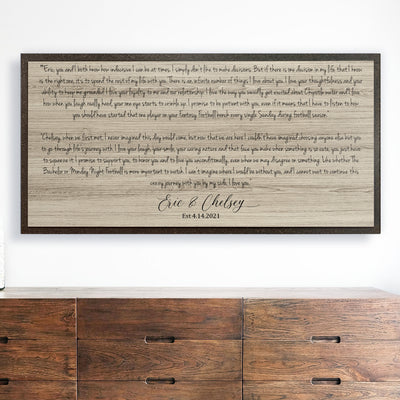 "Eric, you and I both know how indecisive I can be at times. I simply don't like to make decisions. But if there is one decision in my life that I know
is the right one, it's to spend the rest of my life with you. There is an infinite number of things I love about you. I love your thoughtfulness and your
ability to keep me grounded. I love your loyalty to me and our relationship. I love the way you usually get excited about Chipotle water and I love
how when you laugh really hard, your one eye starts to crinkle up. I promise to be patient with you, even if it means that I have to listen to how
you should have started that one player on your fantasy football bench every single Sunday during football season."
"Chelsey, when we first met, I never imagined this day would come, but now that we are here I couldn't have imagined choosing anyone else but you
to go through life's journey with. I love your laugh, your smile, your caring nature and that face you make when something is so cute, you just have
to squeeze it. I promise to support you, to honor you and to love you unconditionally, even when we may disagree on something. Like whether The
Bachelor or Monday Night Football is more important to watch. I can't imagine where I would be without you, and I cannot wait to continue this
crazy journey with you by my side. I love you."
Eric & Chelsey
Est 4.14.2021